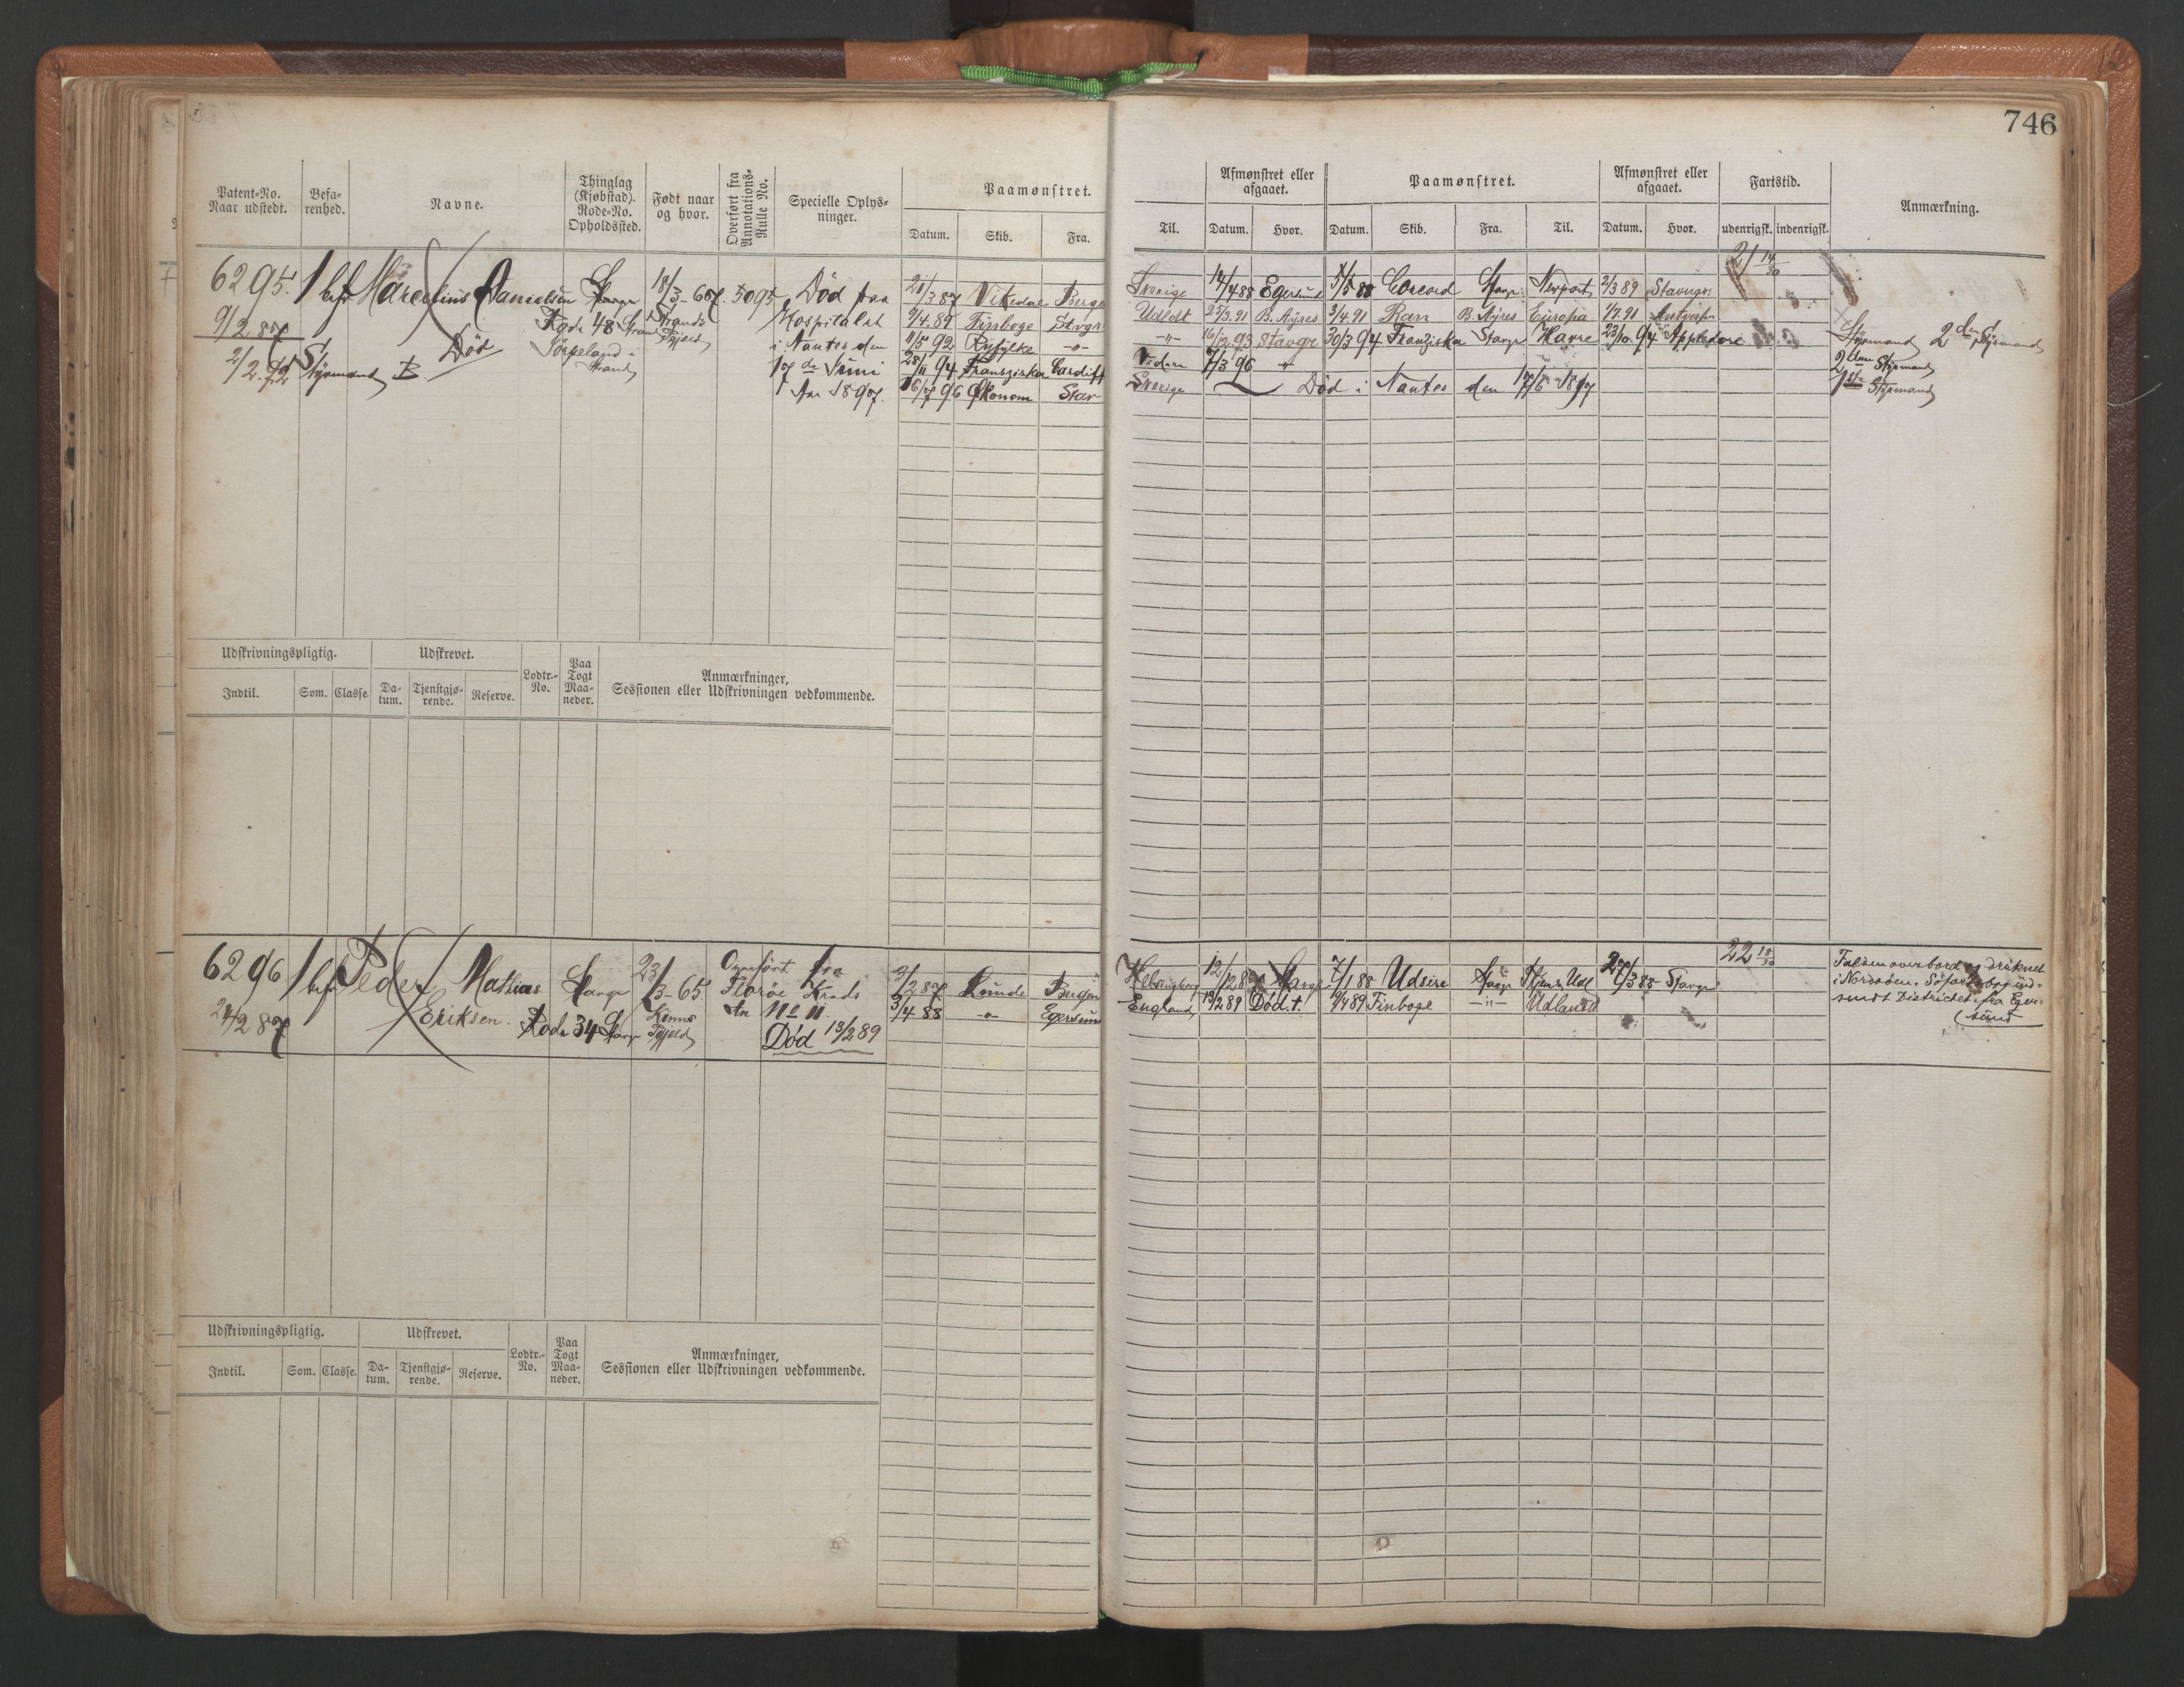 746
Patent-No. Naar udstedt.
Befa-renhed.
Navne.
Thinglag (Kjøbstad). Rode-No. Opholdssted.
Født naar og hvor.
Overført fra Annotations-Rulle No.
Specielle Oplys-ninger.
Paamønstret.
Datum. Skib. Fra.
Til.
Afmønstret eller afgaaet.
Datum. Hvor.
Paamønstret.
Datum. Skib. Fra. Til.
Afmønstret eller afgaaet.
Datum. Hvor.
Fartstid.
udenrigsk. indenrigsk.
Anmærkning.
6295. 1 bef Marcelius Danielsen Stavgr 18/3-67. 5095 Død paa
9/2 87 Rode 48 Strand Tfjeld Hospitalet
Død Jörpeland i Strand i Nantes den
2/2 92 Styrmand B 17de Juni
Aar 1897.
21/3 87 Vikedal Bergen Sverige 14/4 88 Egersund 5/5 88 Concord Stavgr Newport 2/3 89 Stavngr 21 14/30
9/4.89 Finboge Stavgr Udldt 25/3.91 B. Ayres 3/4.91 Ran B. Ayres Europa 1/7.91 Antverpn
11/5 92 Ryfylke -"- -"- 16/12 93 Stavgr 30/3 94 Franziska Stavgr Havre 23/10.94 Appledore Styrmand 2den Styrmand
28/11 94 Franziska Cardiff Videre 7/3 96 " 2den Styrmand
16/7 96 Økonom Stav Sverige Død i Nantes den 17/6 1897 1ste Styrmand
Udskrivningspligtig.
Udskrevet.
Lodtr.-No.
Paa Togt Maa-neder.
Anmærkninger,
Sessionen eller Udskrivningen vedkommende.
Indtil. Som. Classe. Da-tum. Tjenstgjø-rende. Reserve.
6296 1 bef Peder Mathias Stavgr 23/3-65 Overført fra
Eriksen. Rode 34 Stavgr Kinns Tfjeld Florøe Krads
24/2 87 An No 11
Død 13/2 89
2/2 87 Lunde Bergen Helsingborg 12/12 87 Stavgr 7/1 88 Udsire Stavgr Kjbn & Udl 27/3 88 Stavgr 22 18/30
3/4 88 -"- Egersund England 13/2 89 Død. t. 9/4 89 Finboge -"- Udlandet
Falden overbord og druknet
i Nordsøen. Söfartsbog ind-
sendt Districtet fra Eger-
sund
Udskrivningspligtig.
Udskrevet.
Lodtr.-No.
Paa Togt Maa-neder.
Anmærkninger,
Sessionen eller Udskrivningen vedkommende.
Indtil. Som. Classe. Da-tum. Tjenstgjø-rende. Reserve.